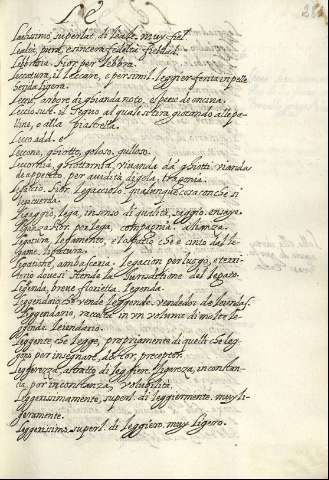 LE
Lealissimo superlat. di Leale. muy fiel.
Lealtà, pura, e sincera fedeltà fieldad.
Lebbrosia fior. per lebbra.
Leccatura, il leccare, e per simil. leggier ferita in pelle
herida ligera.
Leccio, arbore di ghianda noto, especie de encina.
Lecciosusi. il segno al quale si tira giocando alle pa-
line, e alla piastrella.
Lecco add. e
Leccone, ghiotto, goloso. guloso.
Leccornia, ghiottornia, vivanda da ghiotti vianda
de appetito, per avidità di gola, tragonia.
Legaccio, fior. legacciolo qualunque cosa con che si
lega cuerda.
Legaggio, lega, in senso di qualità, saggio. ensaye.
Leganza fior per lega, compagnia. alianza.
Legatura, legamento, e lo spatio che è cinto dal le-
game. ligatura.
Legatione, ambasceria. legacion per luogo, e terri-
torio dove si stende la Jurisditione del legato.
Legenda, breve storietta. legenda.
Leggendaio, che vende leggende. vendedor de leiendas.
Leggendario, raccolta in un volumi di molte le-
ggende. leiendario.
Leggente, che legge, propriamente di quelli che leg-
gono per insegnare, doctor, preceptor.
Leggerezza, astratto di leggiere. ligereza, inconstan-
cia, per inconstanza, volubilità.
Leggerissimamente, superl. di leggiermente. muy li-
geramente.
Leggerissimo superl. di leggiero. muy ligero.